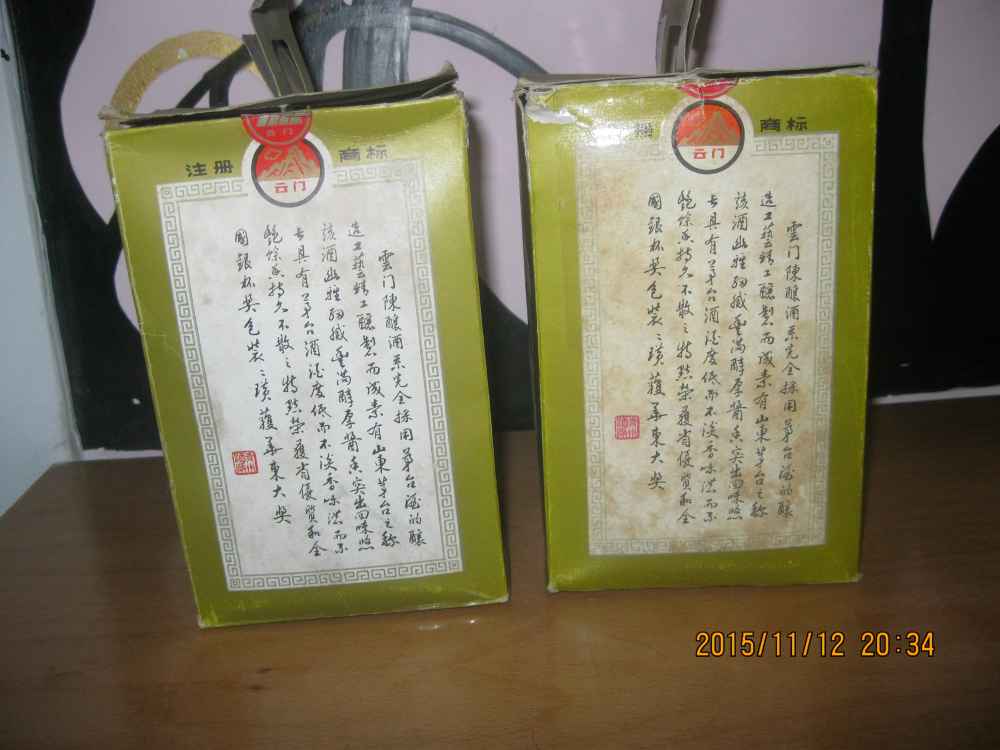 注册
云门
云门
商标
雲门陳釀酒系完全採用茅台酒的釀
造工藝精工釀製而成素有山東茅台之称
该酒幽雅细腻豊满醇厚醬香突出回味悠
长具有茅台酒酒度低而不淡香味浓而不
艳馀香持久不散之特点荣獲省優質和全
國銀杯奖包裝々璜獲華東大奖
册
云门
商标
雲门陳釀酒系完全採用茅台酒的釀
造工藝精工釀製而成素有山東茅台之称
该酒幽雅细腻豊满醇厚醬香突出回味悠
长具有茅台酒酒度低而不淡香味浓而不
艳馀香持久不散之特点荣獲省優質和全
國銀杯奖包裝々璜獲華東大奖
2015/11/12 20:34